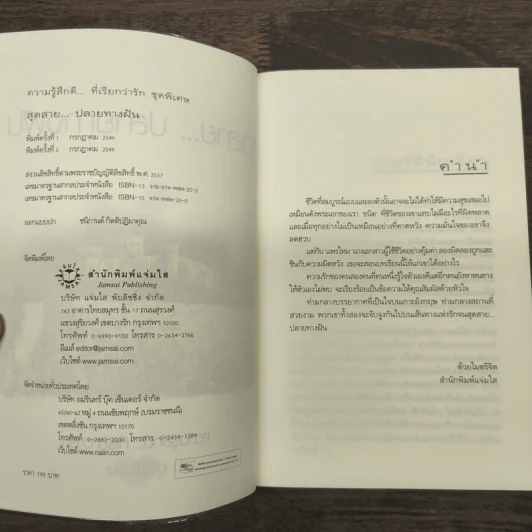 ความรู้สึกดี... ที่เรียกว่ารัก ชุดพิเศษ
สุดสาย... ปลายทางฝัน
พิมพ์ครั้งที่ 1 กรกฎาคม 2549
พิมพ์ครั้งที่ 2 กรกฎาคม 2549
สงวนลิขสิทธิ์ตามพระราชบัญญัติลิขสิทธิ์ พ.ศ. 2537
เลขมาตรฐานสากลประจำหนังสือ ISBN-13 978-974-9984-25-3
เลขมาตรฐานสากลประจำหนังสือ ISBN-10 974-9984-25-0
ออกแบบปก ชนิกานต์ กิตติปฏิมาคุณ
จัดพิมพ์โดย
สำนักพิมพ์แจ่มใส
Jamsai Publishing
บริษัท แจ่มใส พับลิชชิ่ง จำกัด
163 อาคารไทยสมุทร ชั้น 17 ถนนสุรวงศ์
แขวงสุริยวงศ์ เขตบางรัก กรุงเทพฯ 10500
โทรศัพท์ 0-6990-9100 โทรสาร 0-2634-2766
อีเมล์ editor@jamsai.com
เว็บไซต์ www.jamsai.com
จัดจำหน่ายทั่วประเทศโดย
บริษัท อมรินทร์ บุ๊ค เซ็นเตอร์ จำกัด
65/60-62 หมู่ 4 ถนนชัยพฤกษ์ (บรมราชชนนี)
เขตตลิ่งชัน กรุงเทพฯ 10170
โทรศัพท์ 0-2882-2000 โทรสาร 0-2434-1384
เว็บไซต์ www.naiin.com
ราคา 199 บาท
คำนำ
ชีวิตที่สมบูรณ์แบบและลงตัวนั้นอาจจะไม่ได้ทำให้มีความสุขเสมอไป
เหมือนดังพระเอกของเรา ชนิต ที่ชีวิตของเขาแทบไม่มีอะไรที่ผิดพลาด
และเมื่อทุกอย่างไม่เป็นเหมือนอย่างที่คาดหวัง ความมั่นใจของเขาจึง
ลดฮวบ
แต่กับ แพรไหม นางเอกสาวผู้ใช้ชีวิตอย่างคุ้มค่า ลองผิดลองถูกและ
ชินกับความผิดหวัง เธอจะสอนบทเรียนนี้ให้แก่เขาได้อย่างไร
ความรักของคนสองคนที่คนหนึ่งรู้ใจตัวเองดีแต่อีกคนยังหาหนทาง
ให้ตัวเองไม่พบ จะเรียงร้อยเป็นข้อความให้คุณสัมผัสด้วยหัวใจ
ท่ามกลางบรรยากาศที่เป็นใจบนเกาะอังกฤษ ท่ามกลางสถานที่
สวยงาม พวกเขาทั้งสองจะจับจูงกันไปบนเส้นทางแห่งรักจนสุดสาย...
ปลายทางฝัน
ด้วยไมตรีจิต
สำนักพิมพ์แจ่มใส